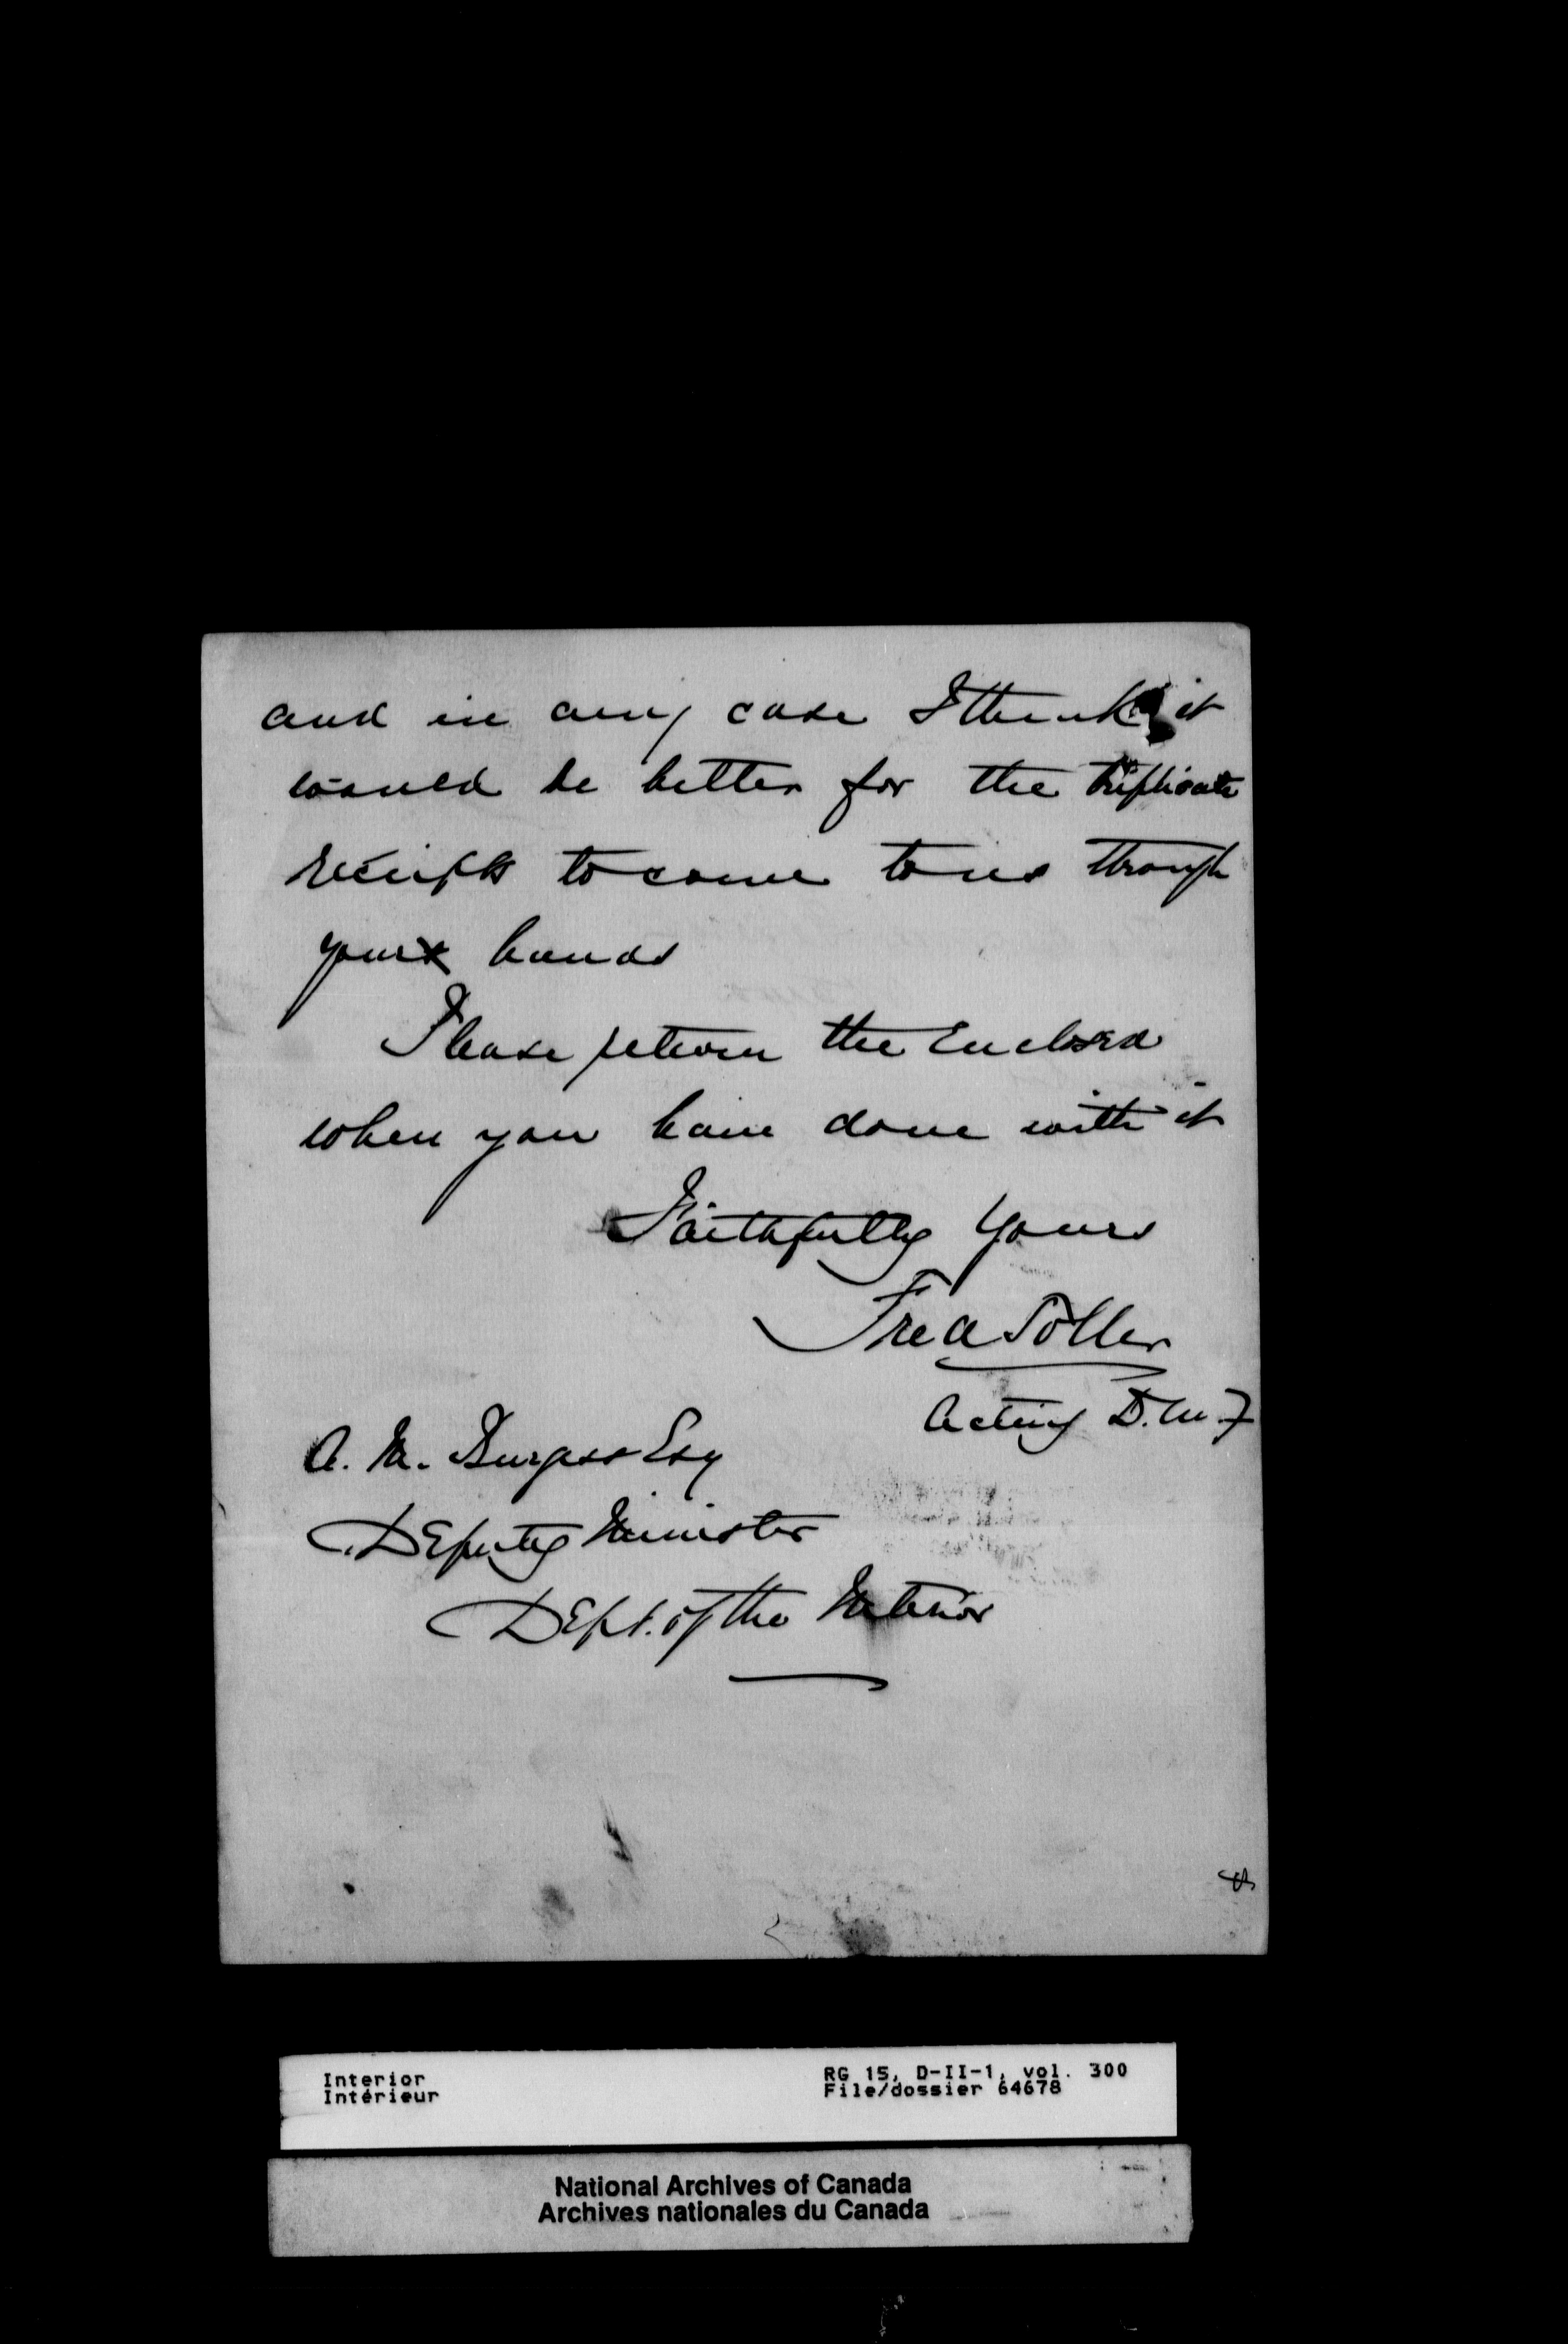 and in any case I think it
would be better for the triplicate
receipts to come to us through
your hands
Please return the Enclosed
when you have done with it
Faithfully Yours
Fred Toller
Acting D.M.F
A. M. Burgess Esq
Deputy Minister
Dept. of the Interior
Interior
Intérieur
RG 15, D-II-1, vol. 300
File/dossier 64678
National Archives of Canada
Archives nationales du Canada